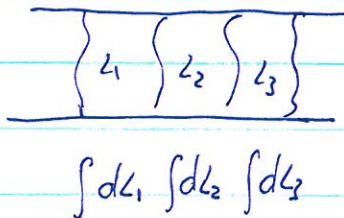 L₁ L₂ L₃
∫dL₁ ∫dL₂ ∫dL₃